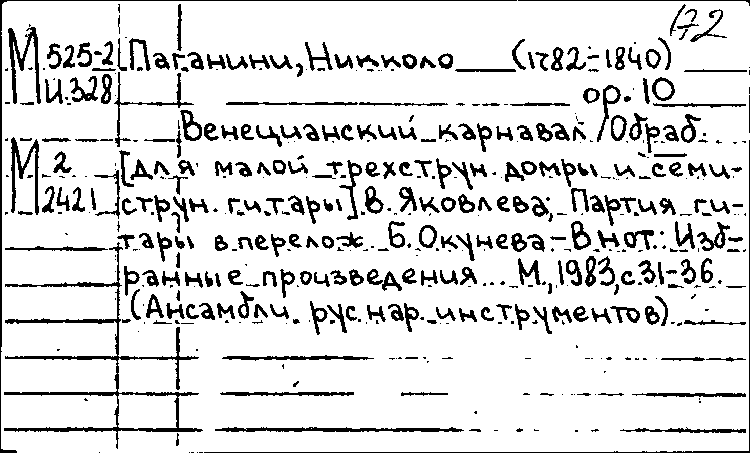 172
М 525-2 Паганини, Никколо (1782-1840)
И.328 ор. 10
Венецианский карнавал /Обраб.
М 2 [для малой трехструн. домры и семи-
2421 струн. гитары] В. Яковлева; Партия ги-
тары в перелож Б. Окунева - В нот.: Изб-
ранные произведения... М., 1983, с. 31-36.
(Ансамбли рус. нар. инструментов)